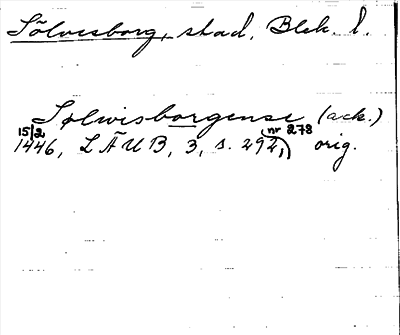 Sölvesborg, stad, Blek. l.
Sølwisborgense (ack.)
15/2 1446, LÄUB, 3, s. 292, (nr 278) orig.